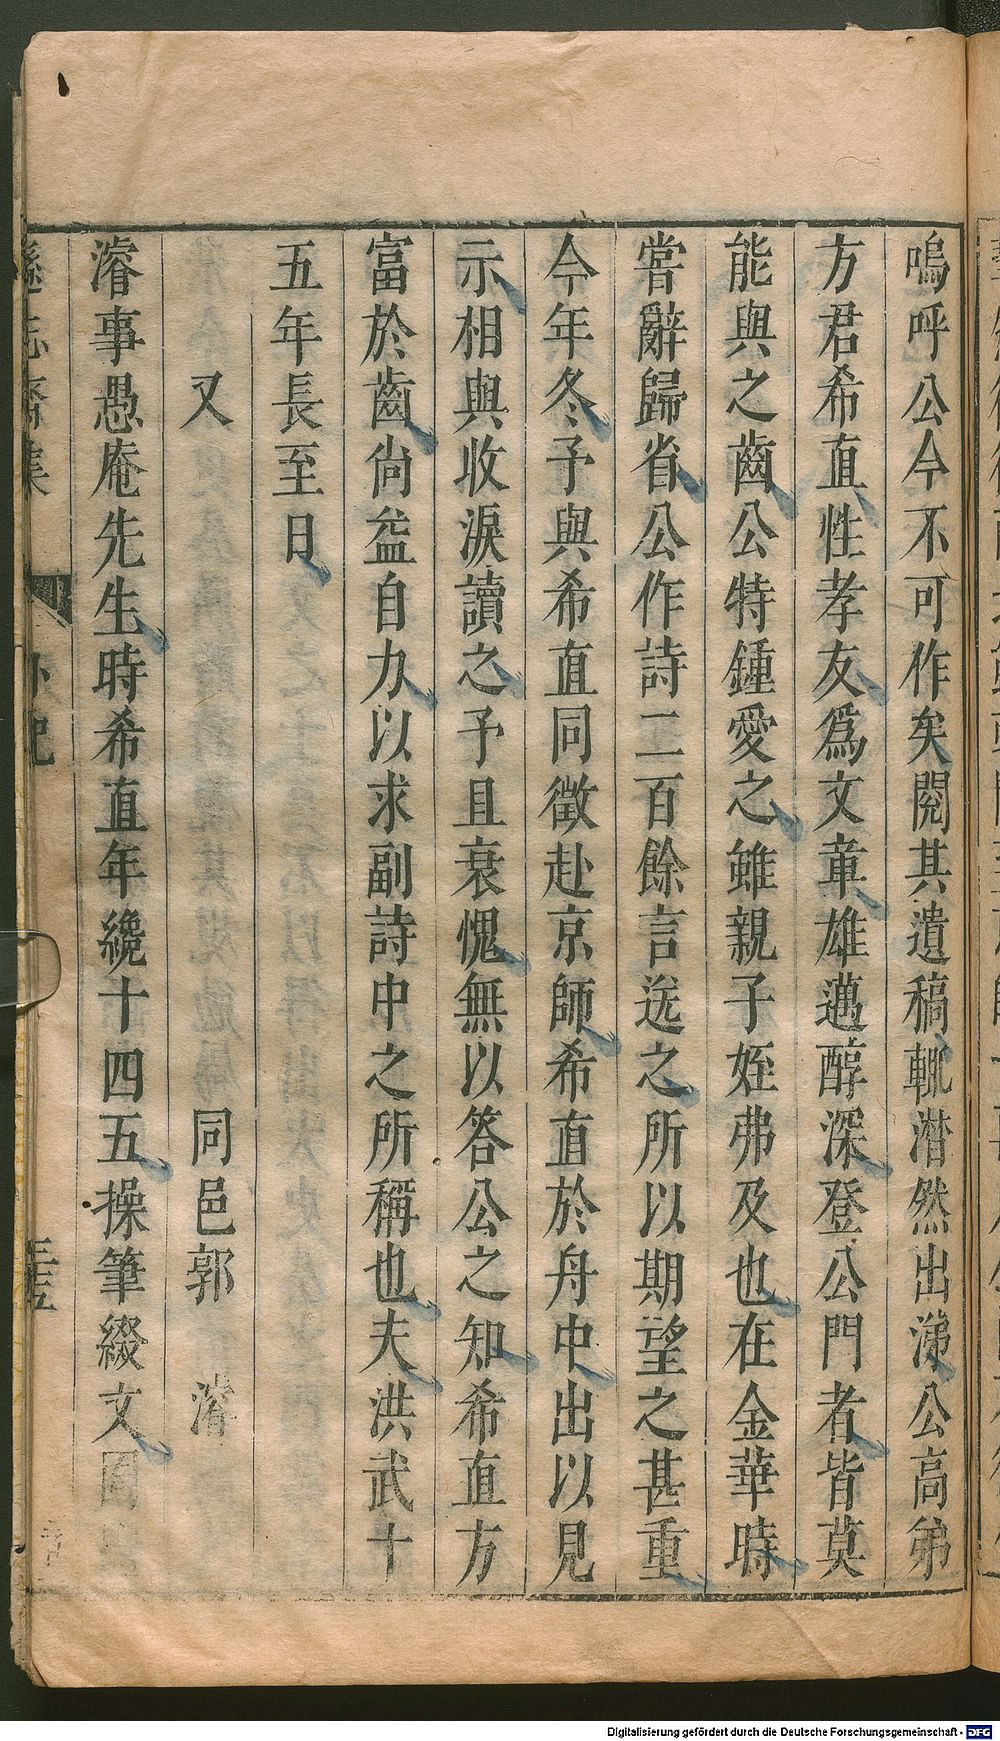 嗚呼公今不可作矣閱其遺稿輒潸然出涕公高弟
方君希直性孝友爲文章雄邁醇深登公門者皆莫
能與之齒公特鍾愛之雖親子姪弗及也在金華時
嘗辭歸省公作詩二百餘言送之所以期望之甚重
今年冬予與希直同徵赴京師希直於舟中出以見
示相與收淚讀之予且衰愧無以答公之知希直方
富於齒尚益自力以求副詩中之所稱也夫洪武十
五年長至日
又 同邑郭濬
濬事愚庵先生時希直年纔十四五操筆綴文
遜志齋集 外紀
Digitalisierung gefördert durch die Deutsche Forschungsgemeinschaft - DFG